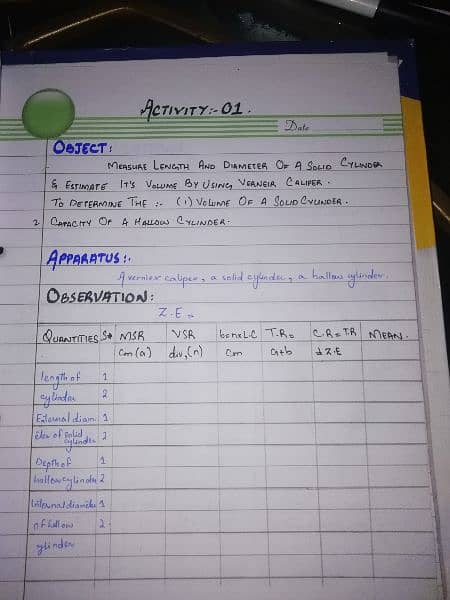 ACTIVITY:-01.
Date
OBJECT:
MEASURE LENGTH AND DIAMETER OF A SOLID CYLINDER
& ESTIMATE IT'S VOLUME BY USING, VERNEIR CALIPER.
TO DETERMINE THE :- (1) VOLUME OF A SOLID CYLINDER.
2 CAPACITY OF A HALLOW CYLINDER.
APPARATUS:.
A vernier caliper, a solid cylinder, a hallow cylinder.
OBSERVATION:
Z.E =
QUANTITIES S# MSR VSR b=nxL.C T.R= C.R=T.R MEAN.
cm(a) div,(n) cm a+b ±Z.E
length of 1
cylinder 2
External diam 1
eter of solid cylinder 2
Depth of 1
hallow cylinder 2
internal diameter 1
of hallow 2
cylinder